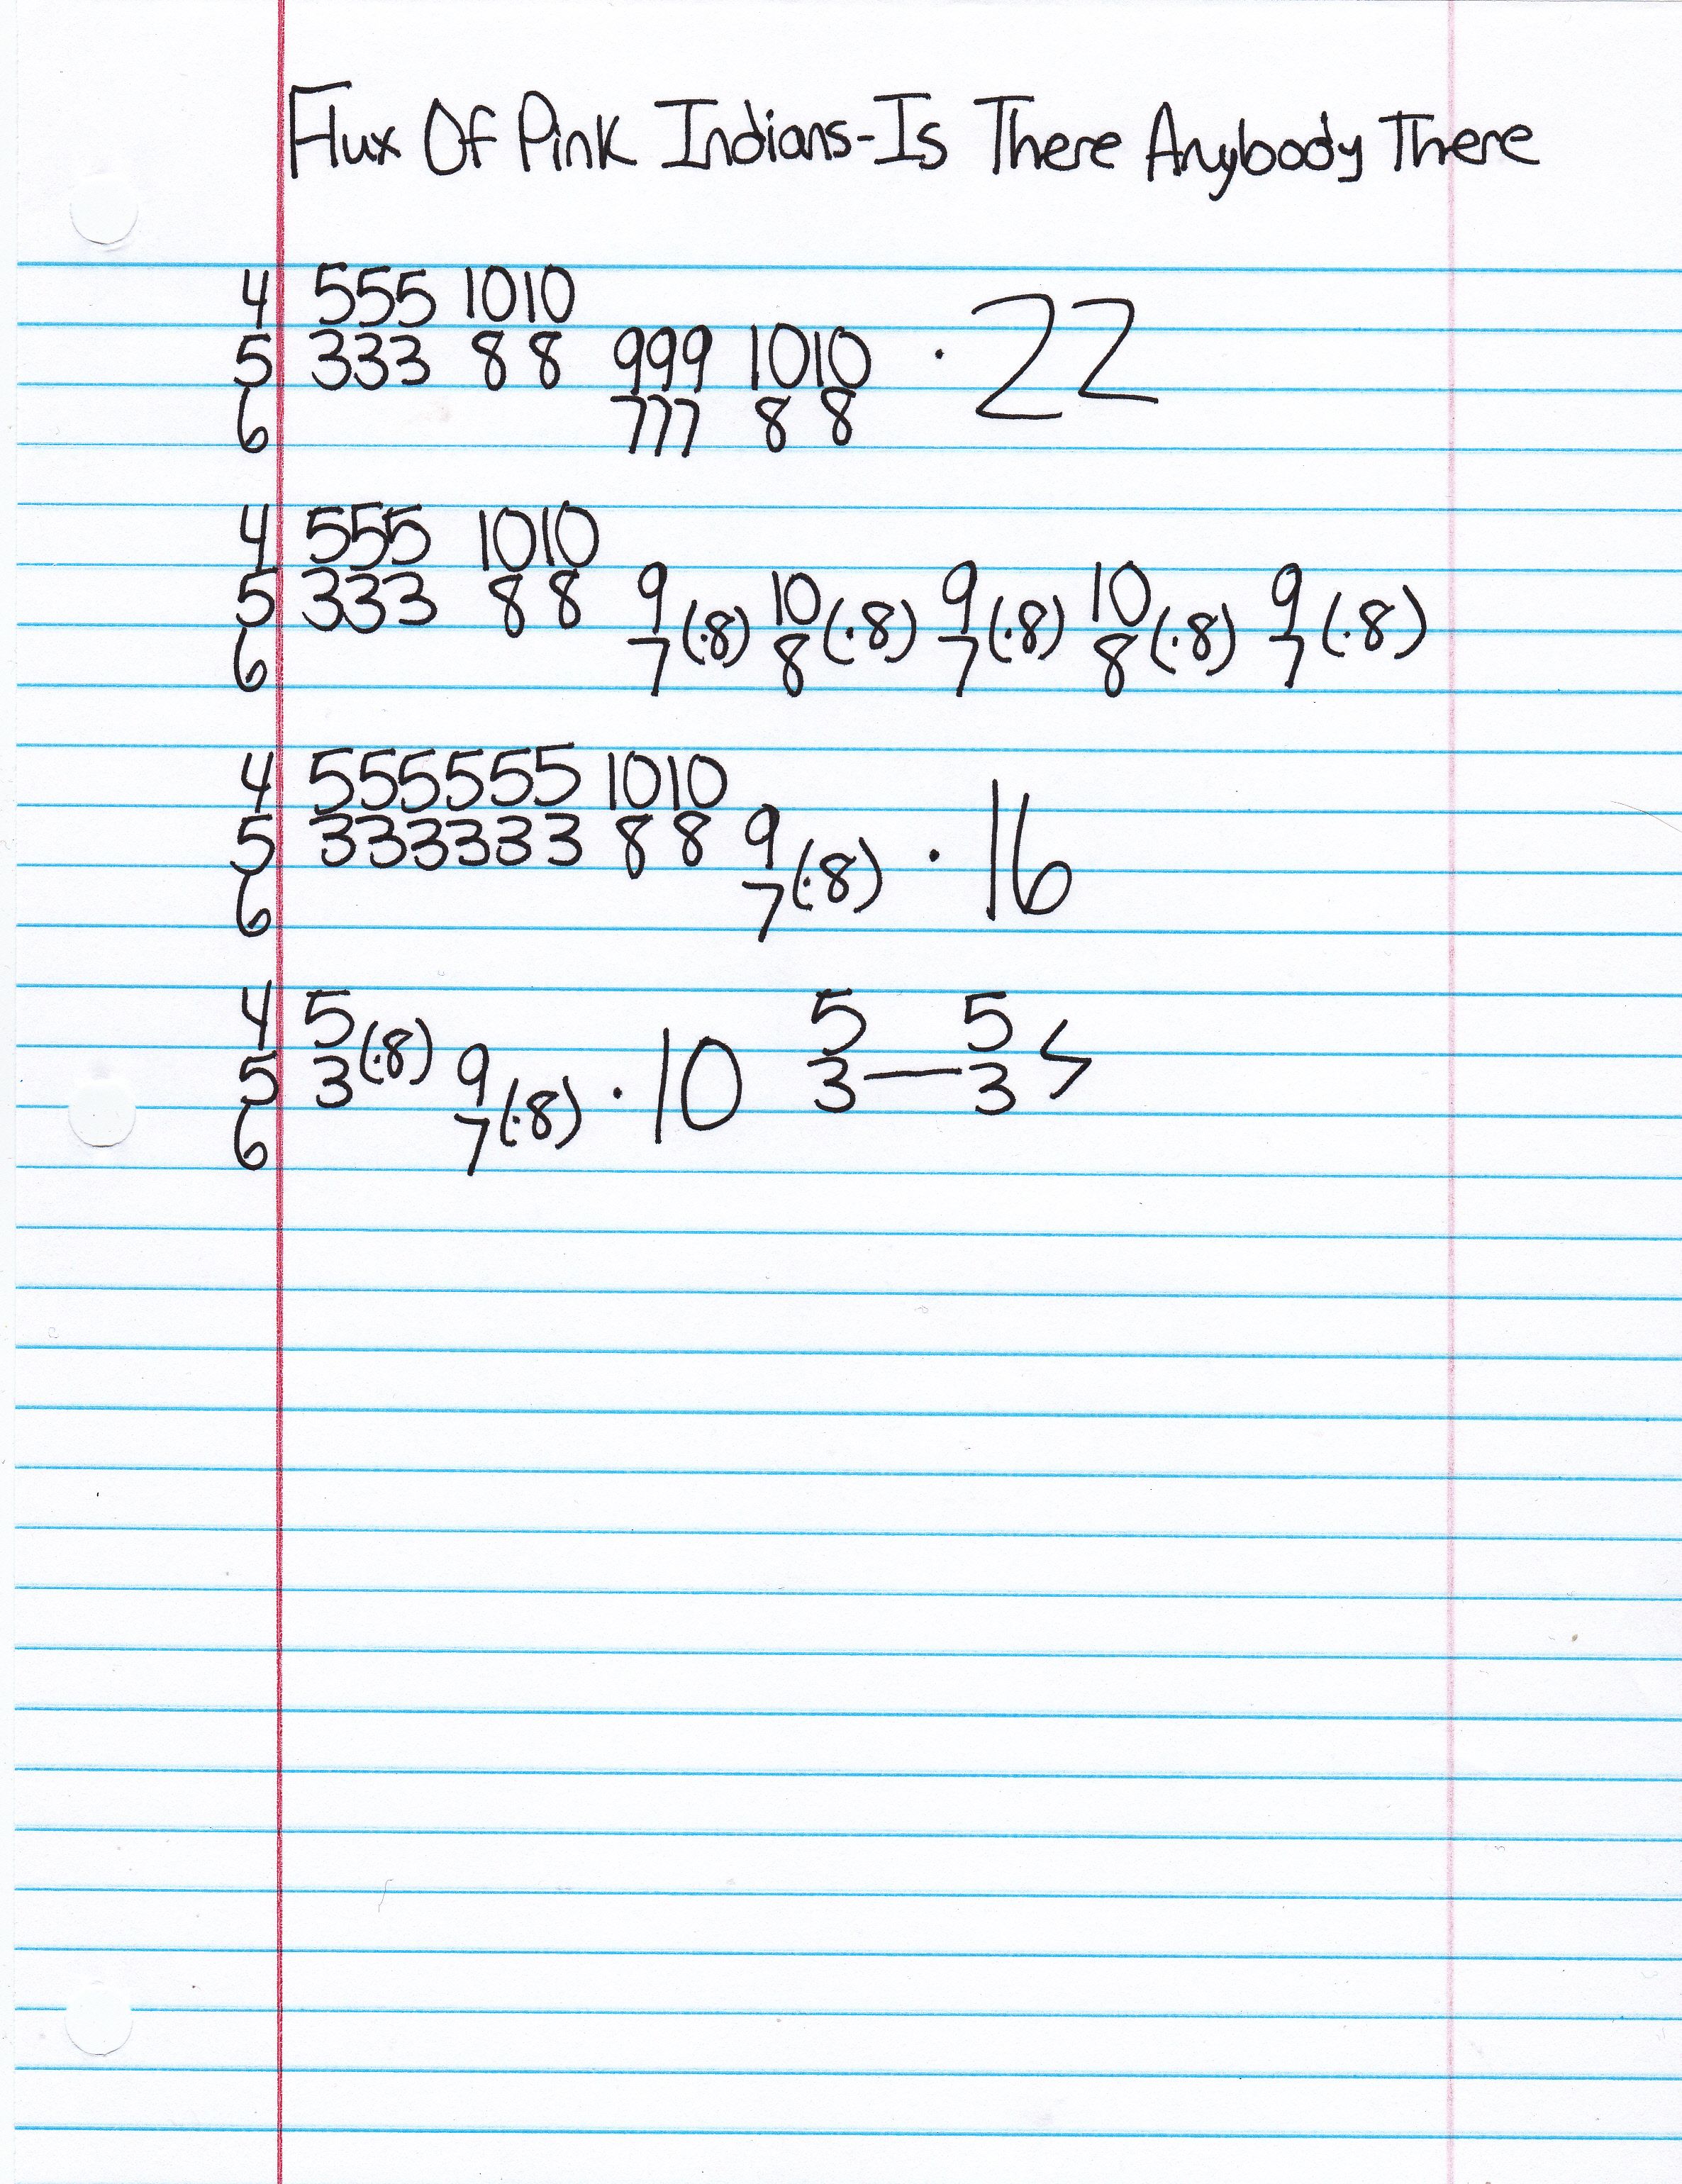 Flux Of Pink Indians-Is There Anybody There
4 555 1010
5 333 8 8 999 1010 · 22
6 777 8 8
4 555 1010
5 333 8 8 9 (·8) 10 (·8) 9 (·8) 10 (·8) 9 (·8)
6 7 8 7 8 7
4 555555 1010
5 333333 8 8 9 (·8) · 16
6 7
4 5 (·8) 5 5
5 3 9 (·8) · 10 3—3 ϟ
6 7